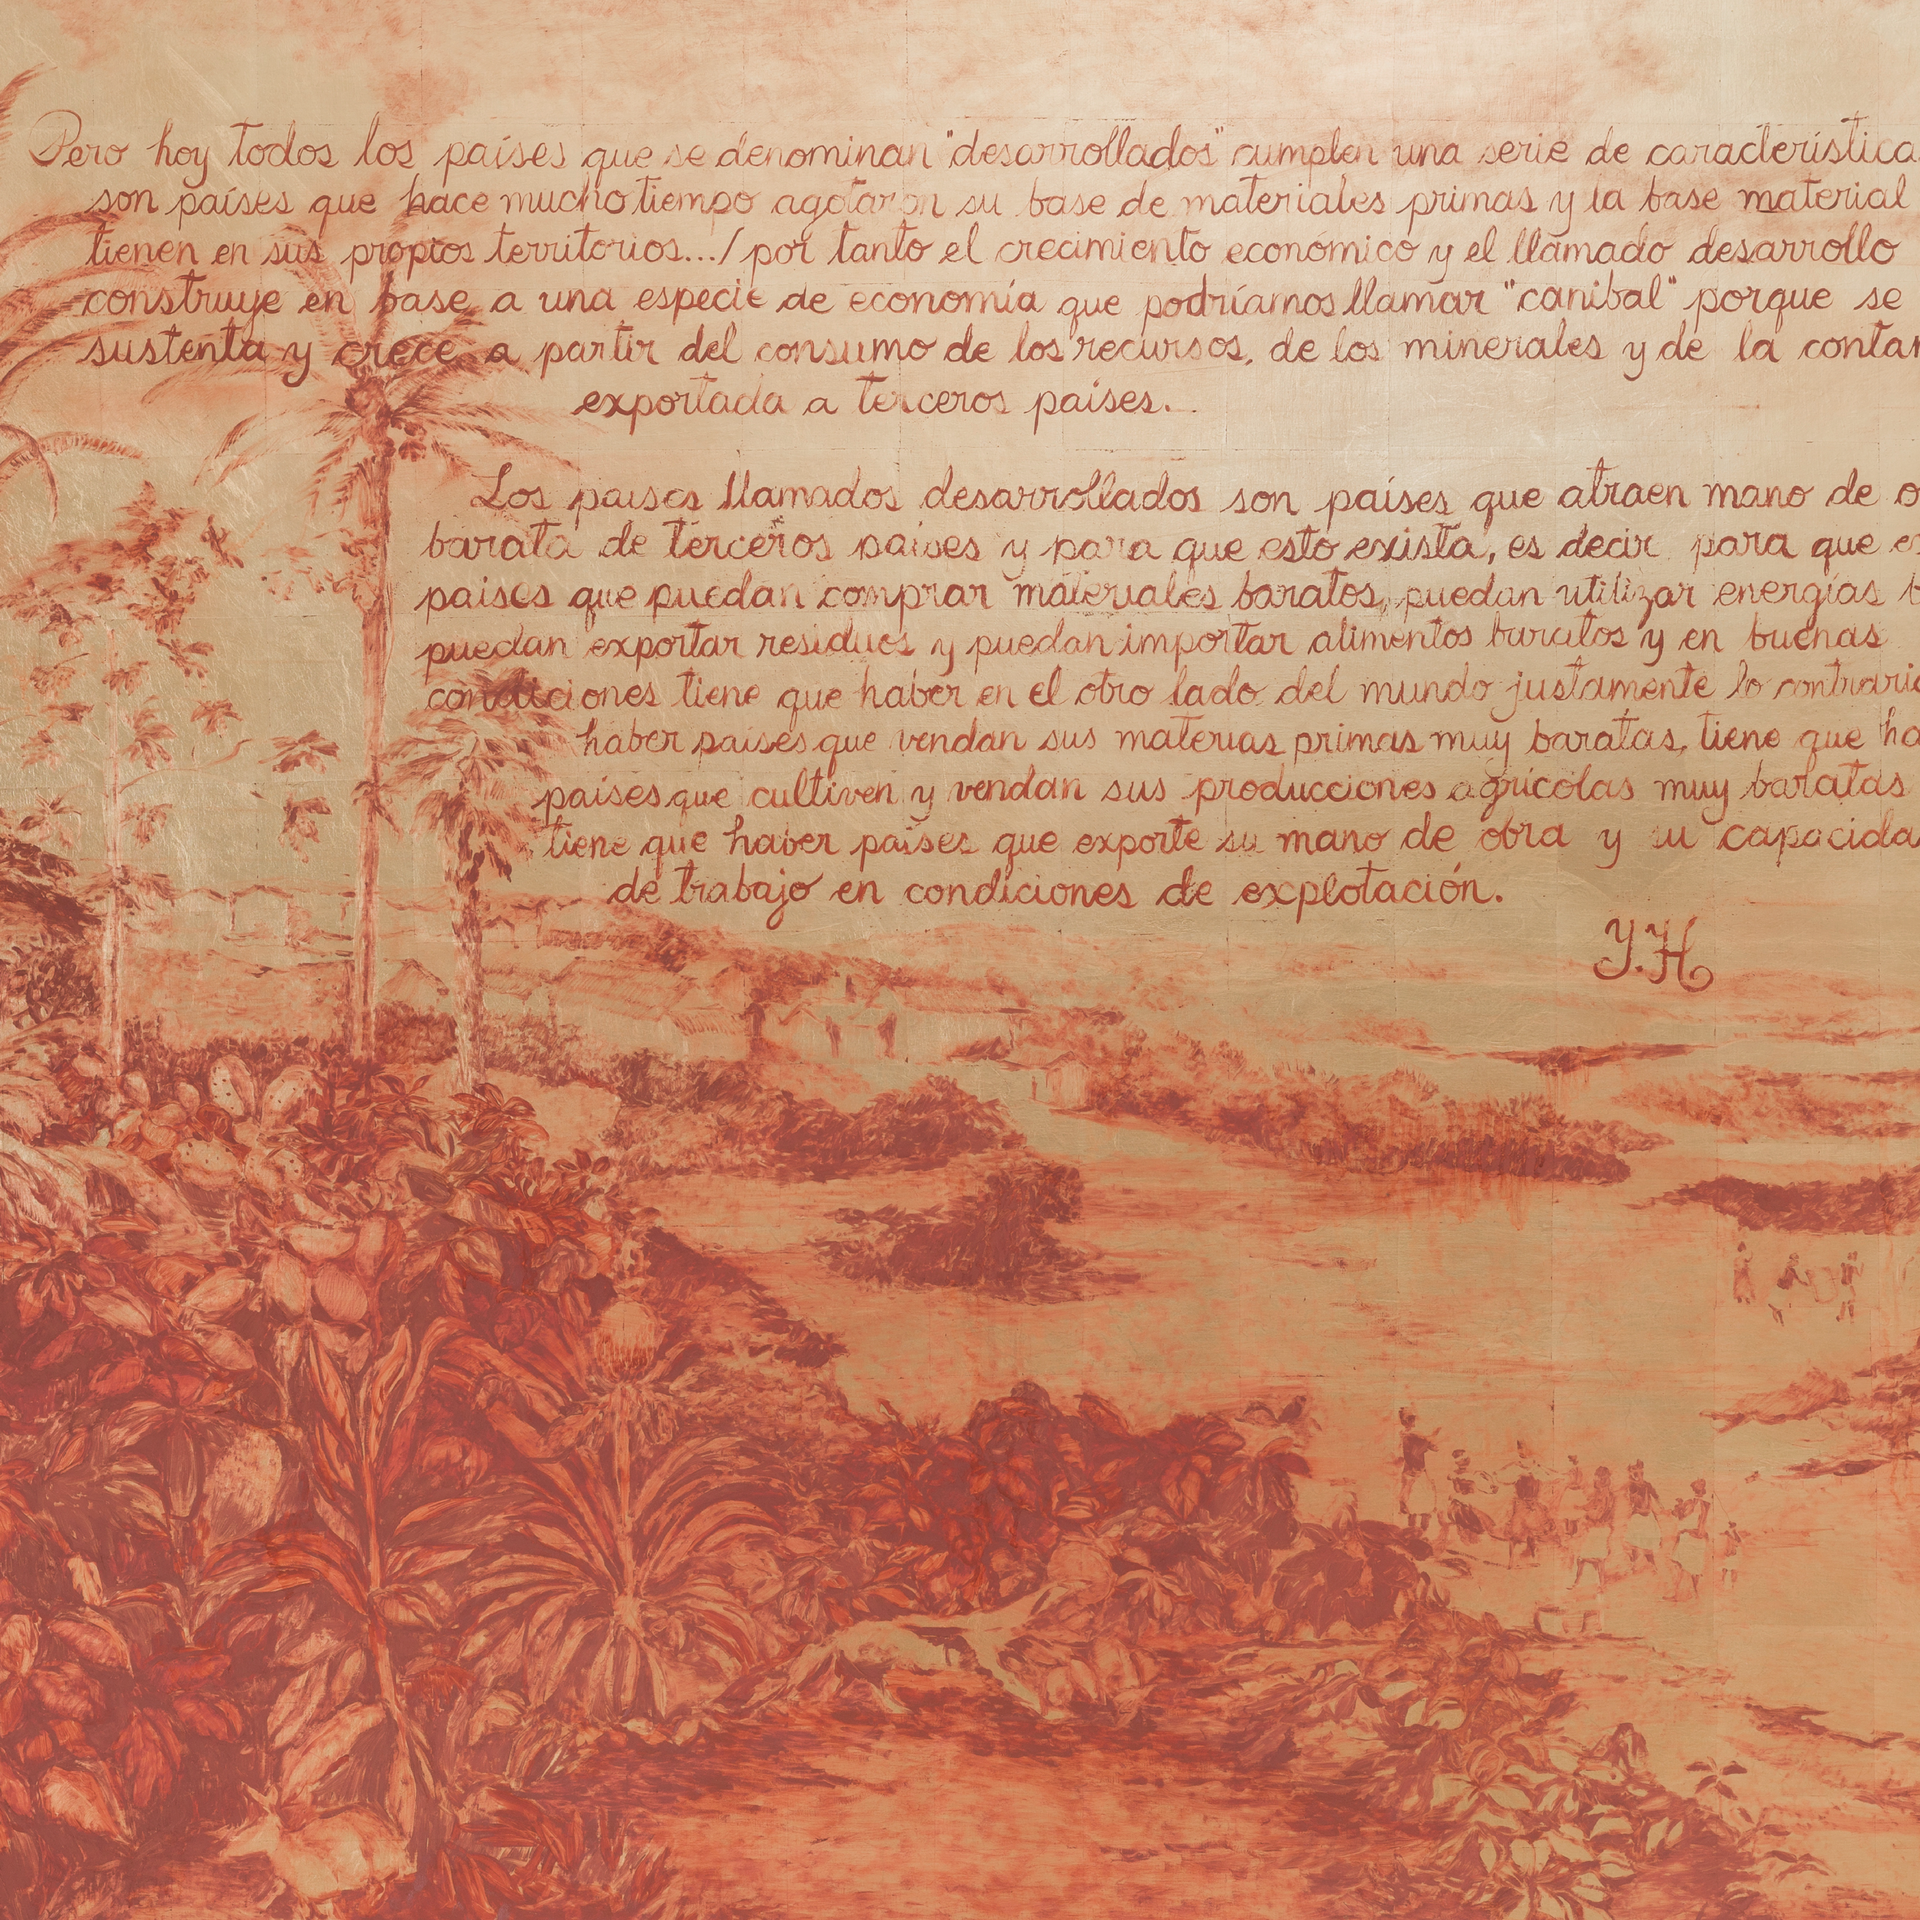 Pero hoy todos los países que se denominan "desarrollados" cumplen una serie de característica
son países que hace mucho tiempo agotaron su base de materiales primas y la base material
tienen en sus propios territorios.../ por tanto el crecimiento económico y el llamado desarrollo
construye en base a una especie de economía que podríamos llamar "canibal" porque se
sustenta y crece a partir del consumo de los recursos, de los minerales y de la contan
exportada a terceros países.
Los países llamados desarrollados son países que atraen mano de o
barata de terceros países y para que esto exista, es decir para que ex
países que puedan comprar materiales baratos, puedan utilizar energías b
puedan exportar residuos y puedan importar alimentos baratos y en buenas
condiciones tiene que haber en el otro lado del mundo justamente lo contrario
haber países que vendan sus materias primas muy baratas, tiene que ha
países que cultiven y vendan sus producciones agrícolas muy baratas
tiene que haber países que exporte su mano de obra y su capacida
de trabajo en condiciones de explotación.
Y.H